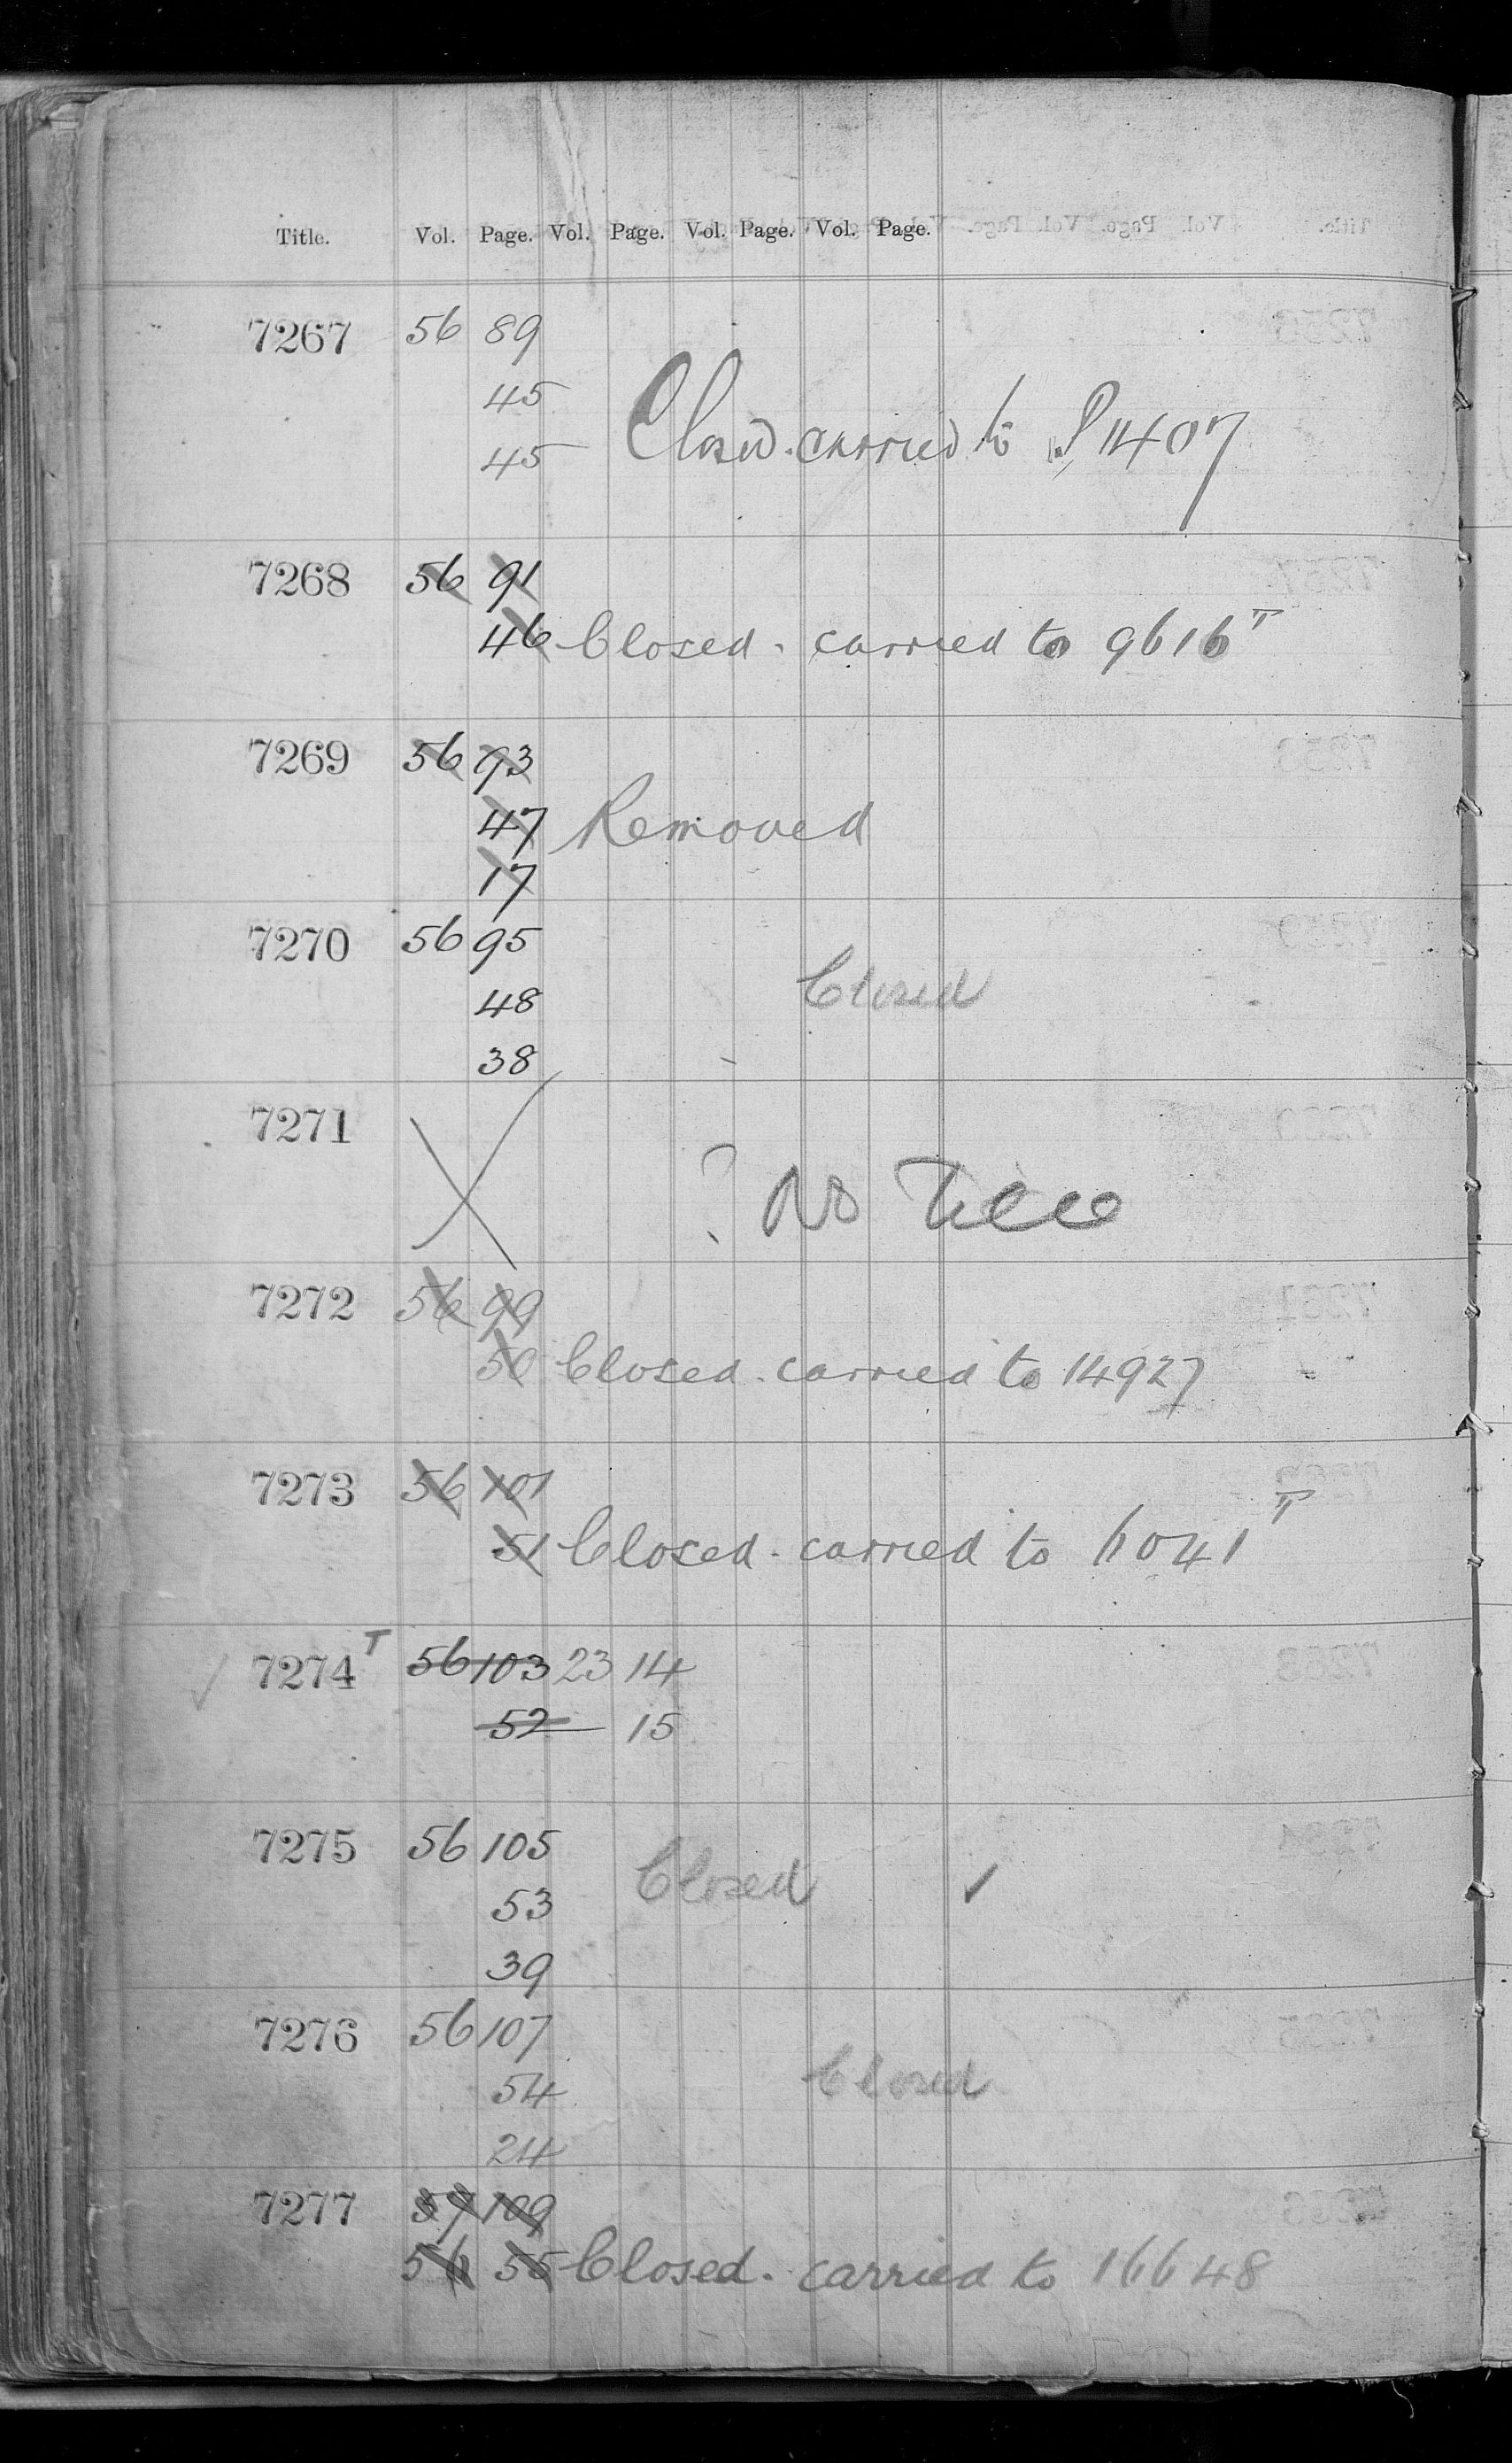 Title. Vol. Page. Vol. Page. Vol. Page. Vol. Page.
7267 56 89
45
45 Closed. carried to P 11407
7268 56 91
46 Closed. carried to 9616 T
7269 56 93
47 Removed
17
7270 56 95
48 Closed
38
7271 X
? No Title
7272 56 99
50 Closed. carried to 14927
7273 56 101
51 Closed. carried to 6041 T
7274 T 56 103 23 14
52 15
7275 56 105
53 Closed ✓
39
7276 56 107
54 Closed
24
7277 57 109
56 55 Closed. carried to 16648